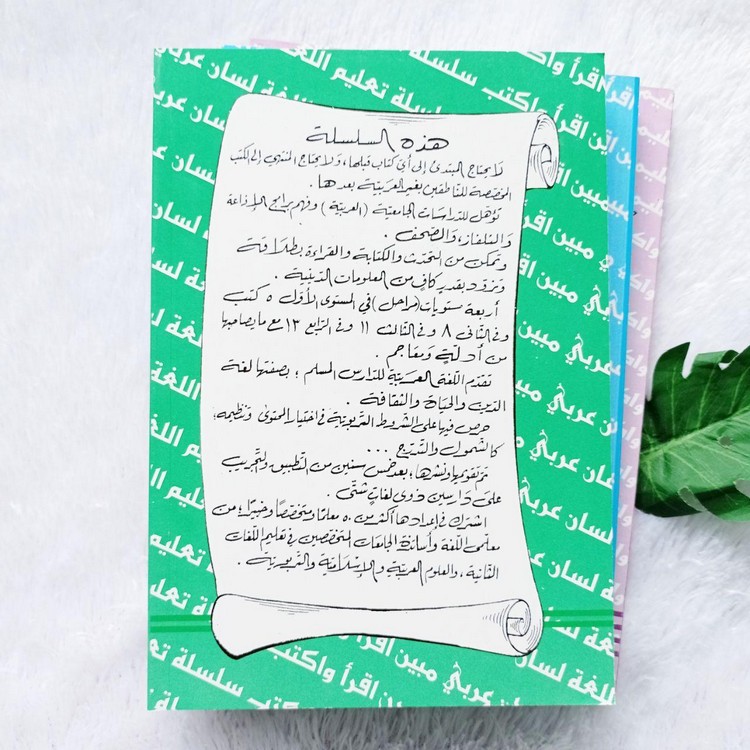 هذه السلسلة
لا يحتاج المبتدئ إلى أيّ كتاب قبلها، ولا يحتاج المنتهي إلى الكتب
المخصّصة للناطقين بغير العربيّة بعدها.
تؤهل للدراسات الجامعيّة (العربيّة) وفهم برامج الإذاعة
والتلفاز، والصّحف.
وتمكن من التحدّث والكتابة والقراءة بطلاقة
وتزوّد بقدر كافٍ من المعلومات الدّينيّة.
أربعة مستويات (مراحل) في المستوى الأوّل ٥ كتب
وفي الثاني ٨ وفي الثالث ١١ وفي الرّابع ١٣ مع ما يصاحبها
من أدلّة ومعاجم.
تقدّم اللّغة العربيّة للدّارس المسلم؛ بصفتها لغة
الدّين والحياة والثّقافة.
حرص فيها على الشّروط التّربويّة في اختيار المحتوى وتنظيمه؛
كالشّمول والتّدرّج ...
تمّ تقويمها ونشرها؛ بعد خمس سنين من التّطبيق والتّجريب
على دارسين ذوي لغاتٍ شتّى.
اشترك في إعدادها أكثر من ٥٠ معلّمًا ومتخصّصًا وخبيرًا؛ من
معلّمي اللّغة وأساتذة الجامعات المتخصّصين في تعليم اللّغات
الثّانية، والعلوم العربيّة والإسلاميّة والتّربويّة.